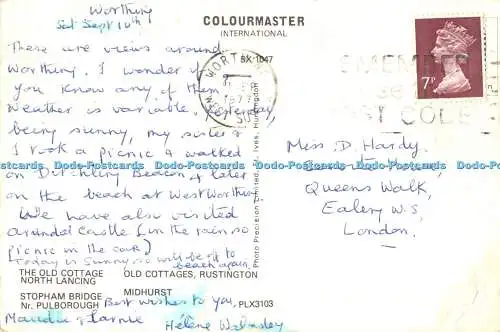 Worthing
Sat Sept 10th
These are views around
Worthing. I wonder if
you know any of them
Weather is variable. Yesterday,
being sunny, my sister &
I took a picnic & walked
on Ditchling Beacon & later
on the beach at West Worthing
We have also visited
Arundel Castle (in the rain so
picnic in the car)
(Today is sunny so will be off to
beach again
THE OLD COTTAGE OLD COTTAGES, RUSTINGTON
NORTH LANCING
STOPHAM BRIDGE MIDHURST
Nr. PULBOROUGH PLX3103
Best wishes to you,
Hélène Walmsley
COLOURMASTER
INTERNATIONAL
BX 1047
WORTHING
1977
WEST SUSSEX
7P
REMEMBER
POST CODE
Photo Precision Limited, St. Ives, Huntingdon
Miss D. Hardy
Queens Walk,
Ealing W.5,
London.
Dodo-Postcards Dodo-Postcards Dodo-Postcards Dodo-Postcards Dodo-Postcards